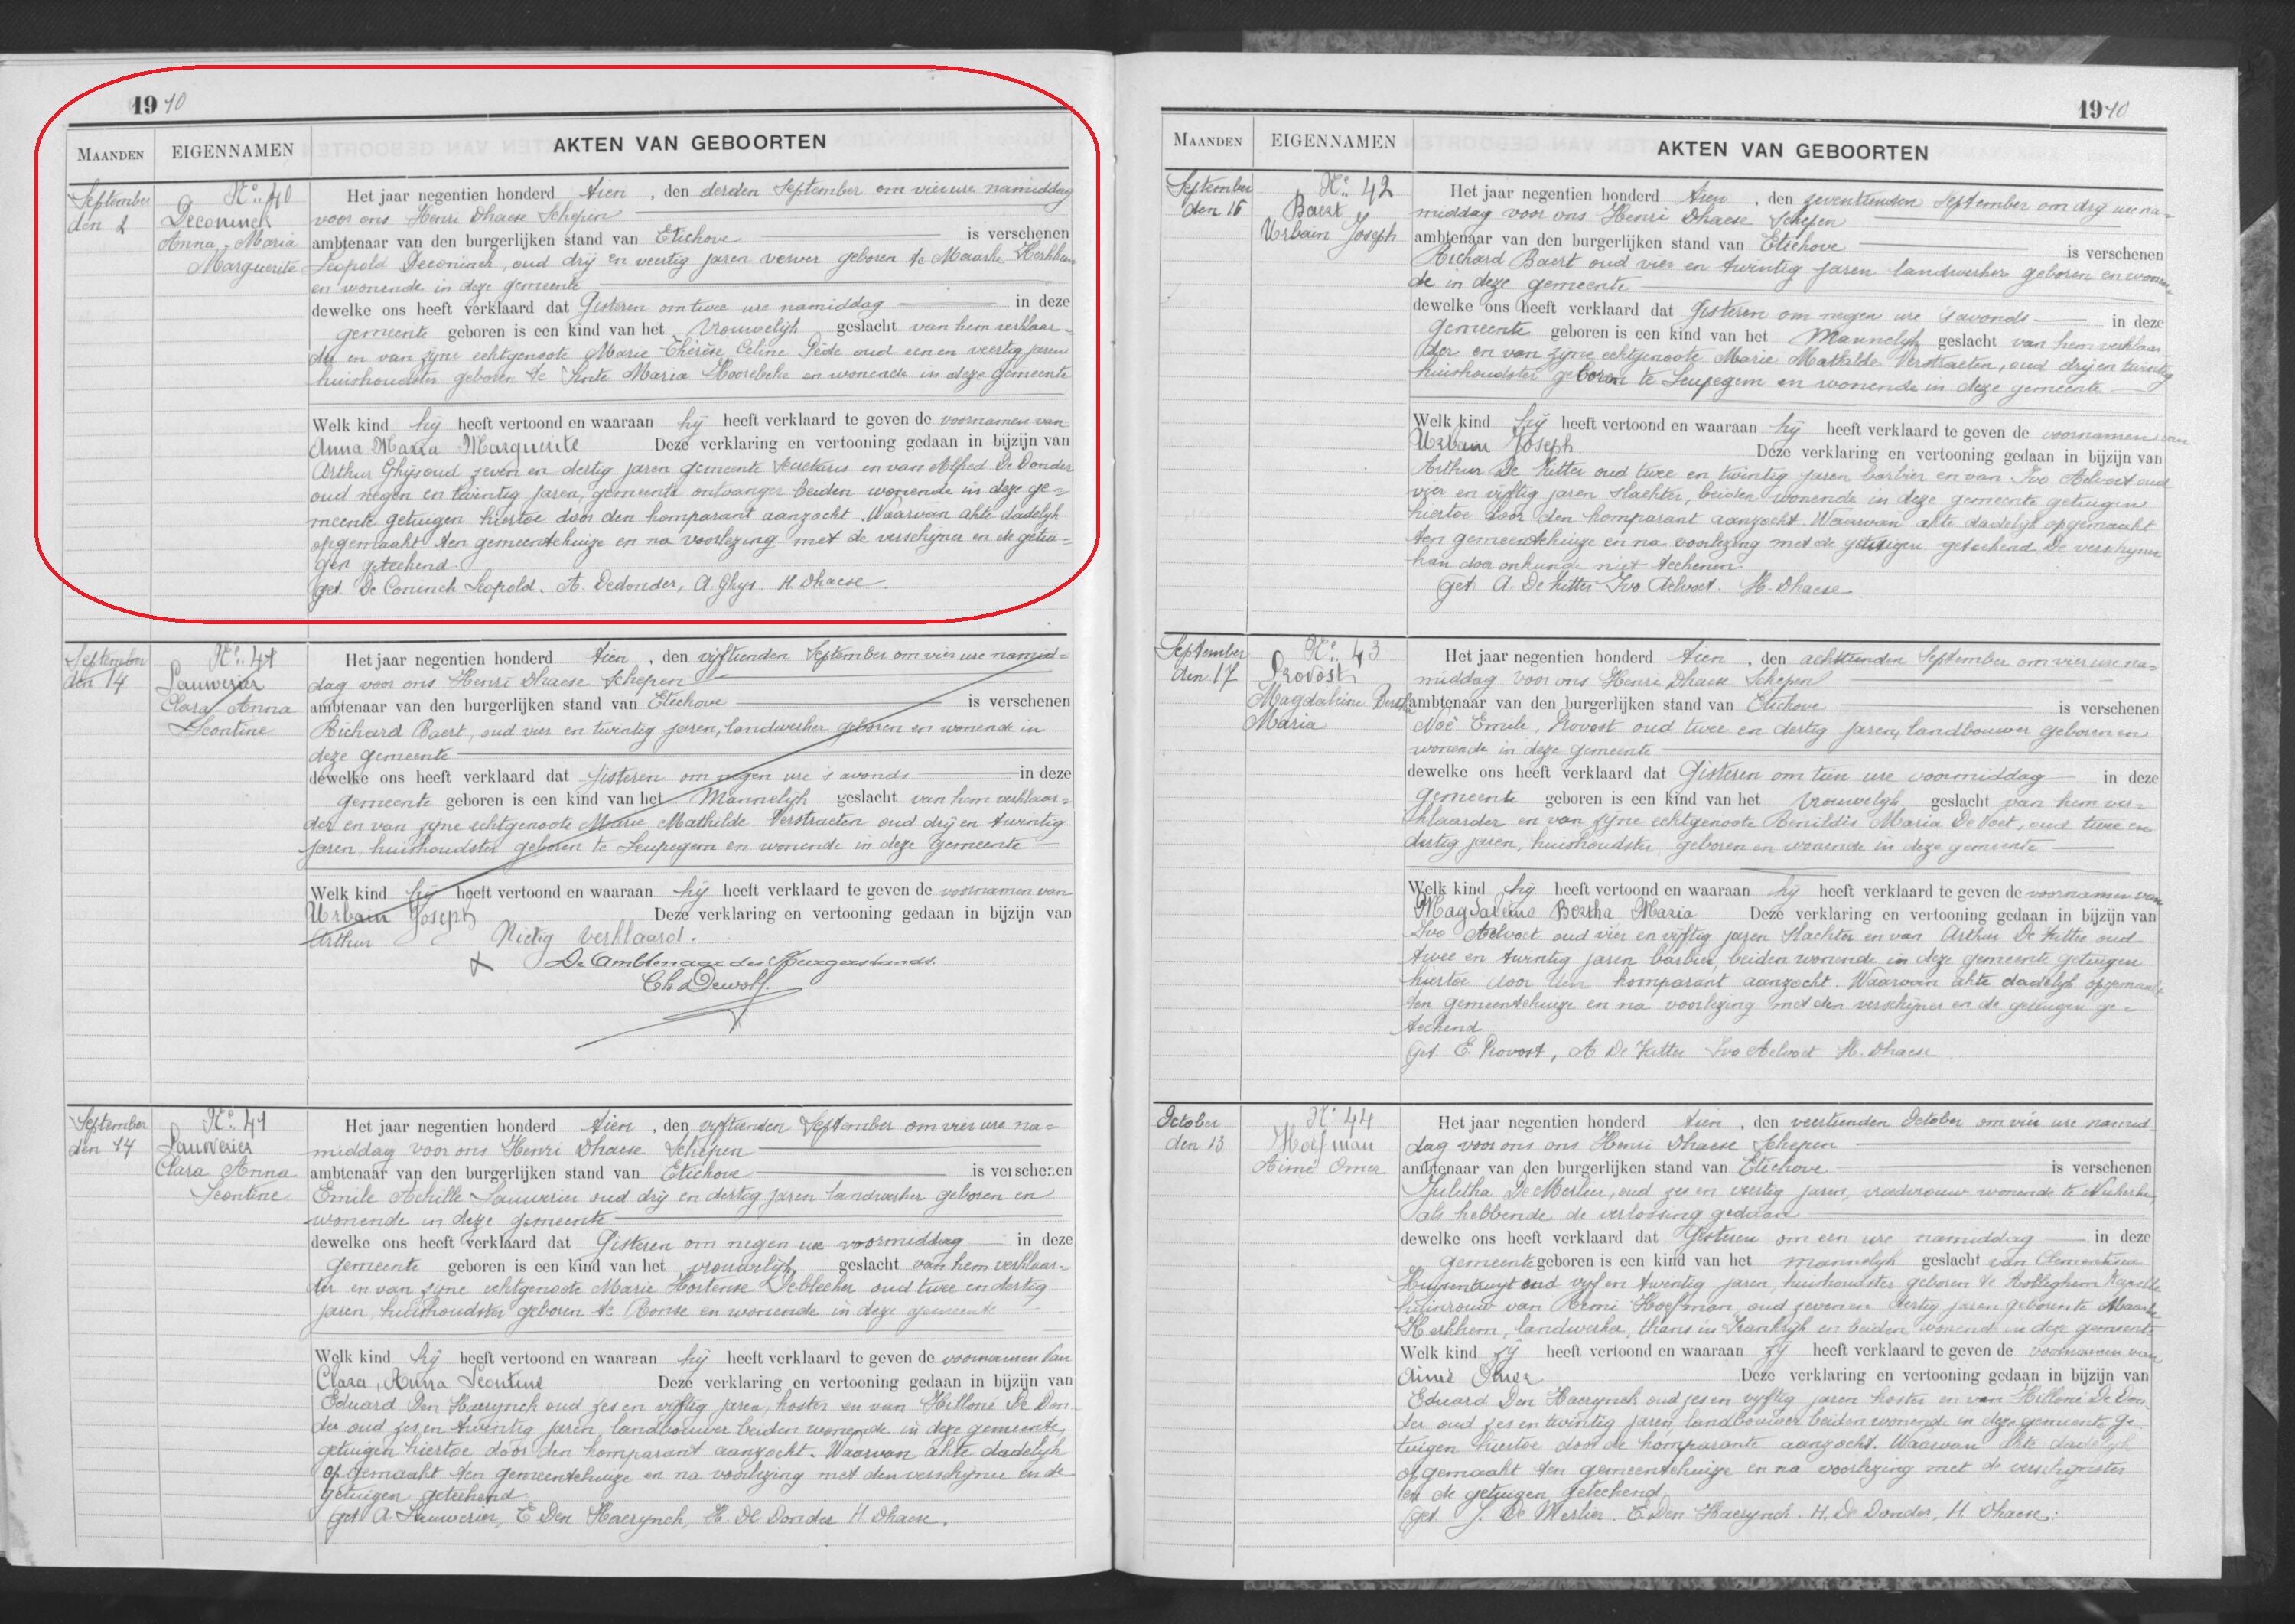 1910
MAANDEN EIGENNAMEN AKTEN VAN GEBOORTEN
September
den 2
No. 40
Deconinck
Anna-Maria
Marguerite
Het jaar negentien honderd tien, den derden September om vier ure namiddag
voor ons Henri Dhaese Schepen
ambtenaar van den burgerlijken stand van Etichove is verschenen
Leopold Deconinck, oud drij en veertig jaren verver geboren te Maarke Kerkhem
en wonende in deze gemeente
dewelke ons heeft verklaard dat Gisteren om twee ure namiddag in deze
gemeente geboren is een kind van het Vrouwelijk geslacht van hem verklaar=
der en van zijne echtgenoote Marie Thérèse Celine Pède oud een en veertig jaren
huishoudster geboren te Sinte Maria Hoorebeke en wonende in deze gemeente
Welk kind hij heeft vertoond en waaraan hij heeft verklaard te geven de voornamen van
Anna Maria Marguerite Deze verklaring en vertooning gedaan in bijzijn van
Arthur Ghys oud zeven en dertig jaren gemeente secretaris en van Alfred De Donder
oud negen en twintig jaren, gemeente ontvanger beiden wonende in deze ge=
meente getuigen hiertoe door den komparant aanzocht. Waarvan akte dadelijk
opgemaakt ten gemeentehuize en na voorlezing met de verschijner en de getui=
gen geteekend.
get. De Coninck Leopold. A. Dedonder, A. Ghys. H. Dhaese.
September
den 14
No. 41
Lauwerier
Clara Anna
Leontine
Het jaar negentien honderd tien, den vijftienden September om vier ure namid=
dag voor ons Henri Dhaese Schepen
ambtenaar van den burgerlijken stand van Etichove is verschenen
Richard Baert, oud vier en twintig jaren, landwerker geboren en wonende in
deze gemeente
dewelke ons heeft verklaard dat gisteren om negen ure 's avonds in deze
gemeente geboren is een kind van het Mannelijk geslacht van hem verklaar=
der en van zijne echtgenoote Marie Mathilde Verstraeten oud drij en twintig
jaren, huishoudster geboren te Leupegem en wonende in deze gemeente
Welk kind hij heeft vertoond en waaraan hij heeft verklaard te geven de voornamen van
Urbain Joseph Deze verklaring en vertooning gedaan in bijzijn van
Arthur Nietig verklaard.
De Ambtenaar des Burgerstands.
Ch. Dewolf.
September
den 14
No. 41
Lauwerier
Clara Anna
Leontine
Het jaar negentien honderd tien, den vijftienden September om vier ure na=
middag voor ons Henri Dhaese Schepen
ambtenaar van den burgerlijken stand van Etichove is verschenen
Emile Achille Lauwerier oud drij en dertig jaren landwerker geboren en
wonende in deze gemeente
dewelke ons heeft verklaard dat Gisteren om negen ure voormiddag in deze
gemeente geboren is een kind van het vrouwelijk geslacht van hem verklaar=
der en van zijne echtgenoote Marie Hortense Debleeker oud twee en dertig
jaren, huishoudster geboren te Ronse en wonende in deze gemeente
Welk kind hij heeft vertoond en waaraan hij heeft verklaard te geven de voornamen van
Clara, Anna Leontine Deze verklaring en vertooning gedaan in bijzijn van
Eduard Den Haerynck oud zes en vijftig jaren, koster en van Hilloné De Don-
der oud zes en twintig jaren, landbouwer beiden wonende in deze gemeente,
getuigen hiertoe door den komparant aanzocht. Waarvan akte dadelijk
opgemaakt ten gemeentehuize en na voorlezing met den verschijner en de
getuigen geteekend.
get. A. Lauwerier, E Den Haerynck, H. De Donder H Dhaese.
1910
MAANDEN EIGENNAMEN AKTEN VAN GEBOORTEN
September
den 16
No. 42
Baert
Urbain Joseph
Het jaar negentien honderd tien, den zeventienden September om drij ure na=
middag voor ons Henri Dhaese Schepen
ambtenaar van den burgerlijken stand van Etichove is verschenen
Richard Baert oud vier en twintig jaren landwerker geboren en wonen
de in deze gemeente
dewelke ons heeft verklaard dat gisteren om negen ure 's avonds in deze
gemeente geboren is een kind van het Mannelijk geslacht van hem verklaar
der en van zijne echtgenoote Marie Mathilde Verstraeten, oud drij en twintig
huishoudster geboren te Leupegem en wonende in deze gemeente
Welk kind hij heeft vertoond en waaraan hij heeft verklaard te geven de voornamen van
Urbain Joseph Deze verklaring en vertooning gedaan in bijzijn van
Arthur De Ritter oud twee en twintig jaren barbier en van Ivo Aelvoet oud
vier en vijftig jaren slachter, beiden wonende in deze gemeente getuigen
hiertoe door den komparant aanzocht. Waarvan akte dadelijk opgemaakt
ten gemeentehuize en na voorlezing met de getuigen geteekend. De verschijner
kan door onkunde niet teekenen.
get. A. De Ritter Ivo Aelvoet. H. Dhaese
September
den 17
No. 43
Provost
Magdaleine Bertha
Maria
Het jaar negentien honderd tien, den achttienden September om vier ure na=
middag voor ons Henri Dhaese Schepen
ambtenaar van den burgerlijken stand van Etichove is verschenen
Noë Emile, Provost oud twee en dertig jaren, landbouwer geboren en
wonende in deze gemeente
dewelke ons heeft verklaard dat Gisteren om tien ure voormiddag in deze
gemeente geboren is een kind van het Vrouwelijk geslacht van hem ver=
klaarder en van zijne echtgenoote Renildis Maria De Voet, oud twee en
dertig jaren, huishoudster, geboren en wonende in deze gemeente
Welk kind hij heeft vertoond en waaraan hij heeft verklaard te geven de voornamen van
Magdaleine Bertha Maria Deze verklaring en vertooning gedaan in bijzijn van
Ivo Aelvoet oud vier en vijftig jaren slachter en van Arthur De Ritter oud
twee en twintig jaren barbier, beiden wonende in deze gemeente getuigen
hiertoe door den komparant aanzocht. Waarvan akte dadelijk opgemaakt
ten gemeentehuize en na voorlezing met den verschijner en de getuigen ge=
teekend
get. E. Provost, A De Ritter Ivo Aelvoet H. Dhaese
October
den 13
No. 44
Hoefman
Aimé Omer
Het jaar negentien honderd tien, den veertienden October om vier ure namid-
dag voor ons ons Henri Dhaese Schepen
ambtenaar van den burgerlijken stand van Etichove is verschenen
Julitha De Merlier, oud zes en veertig jaren, vroedvrouw wonende te Nukerke,
als hebbende de verlossing gedaan
dewelke ons heeft verklaard dat Gisteren om een ure namiddag in deze
gemeente geboren is een kind van het mannelijk geslacht van Clementina
oud vijf en twintig jaren, huishoudster geboren te
huisvrouw van Remi Hoefman, oud zeven en dertig jaren geboren te Maarke
Kerkhem, landwerker, thans in Frankrijk en beiden wonend in deze gemeente
Welk kind zij heeft vertoond en waaraan zij heeft verklaard te geven de voornamen van
Aimé Omer Deze verklaring en vertooning gedaan in bijzijn van
Eduard Den Haerynck oud zes en vijftig jaren koster en van Hilloné De Don-
der oud zes en twintig jaren, landbouwer beiden wonend in deze gemeente, ge
tuigen hiertoe door de komparante aanzocht. Waarvan akte dadelijk
opgemaakt ten gemeentehuize en na voorlezing met de verschijnster
en de getuigen geteekend
get. J. De Merlier. E. Den Haerynck. H. De Donder, H. Dhaese.